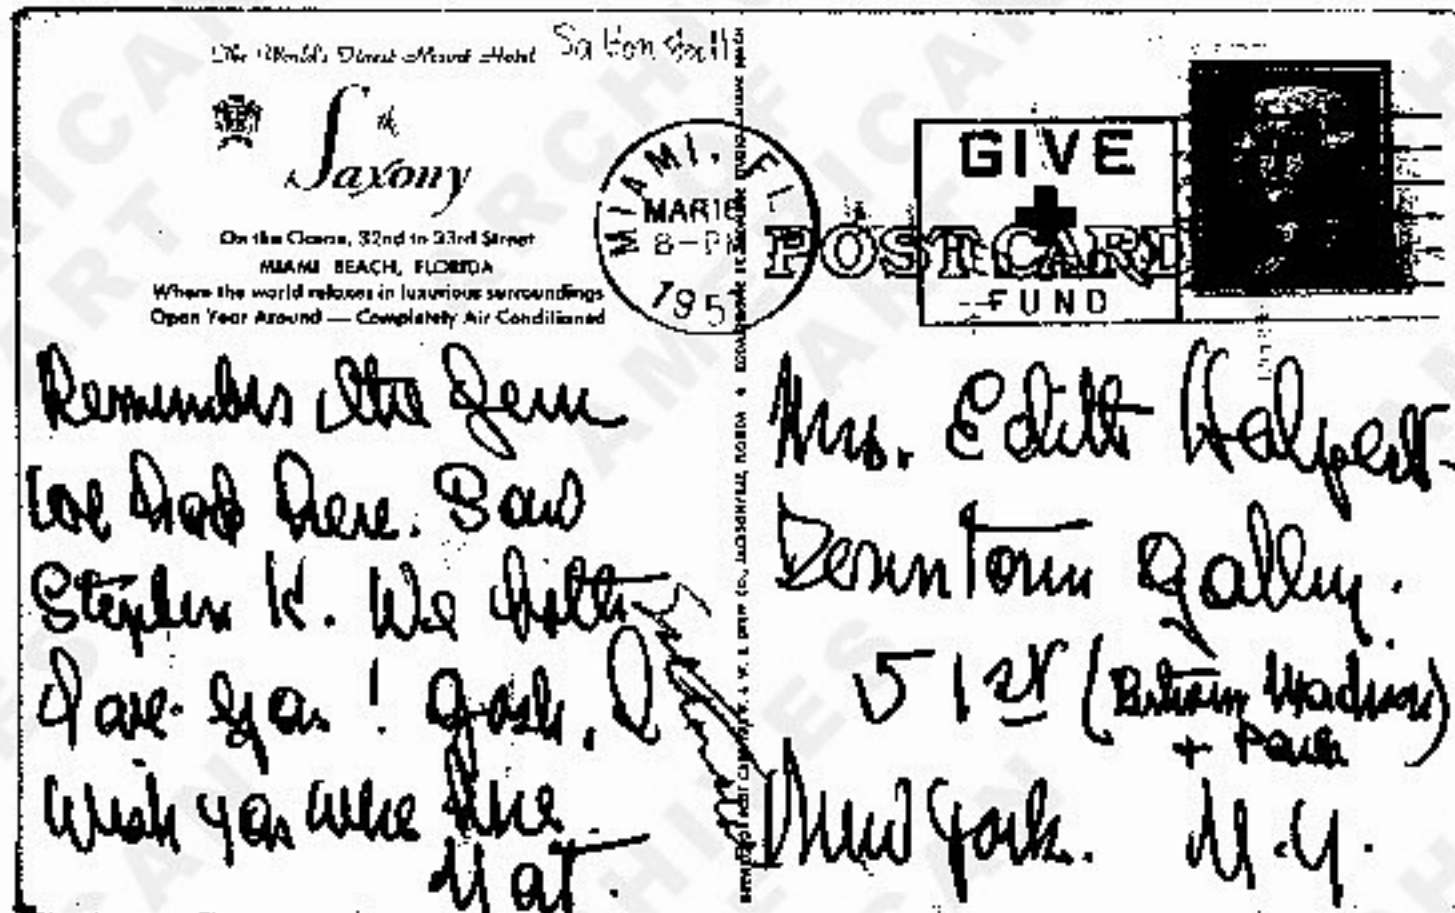 The World's Finest Resort Hotel
Saltonstall
the Saxony
On the Ocean, 32nd to 33rd Street
MIAMI BEACH, FLORIDA
Where the world relaxes in luxurious surroundings
Open Year Around — Completely Air Conditioned
MIAMI, FL
MAR 16
8-PM
195
GIVE
POST CARD
FUND
Remember the
we had here. Saw
Stephen K. We both
love you! Gosh, I
wish you were here
Nat.
Mrs. Edith Halpert
Downtown Gallery.
51st (Between Madison)
+ Park
New York. N.Y.